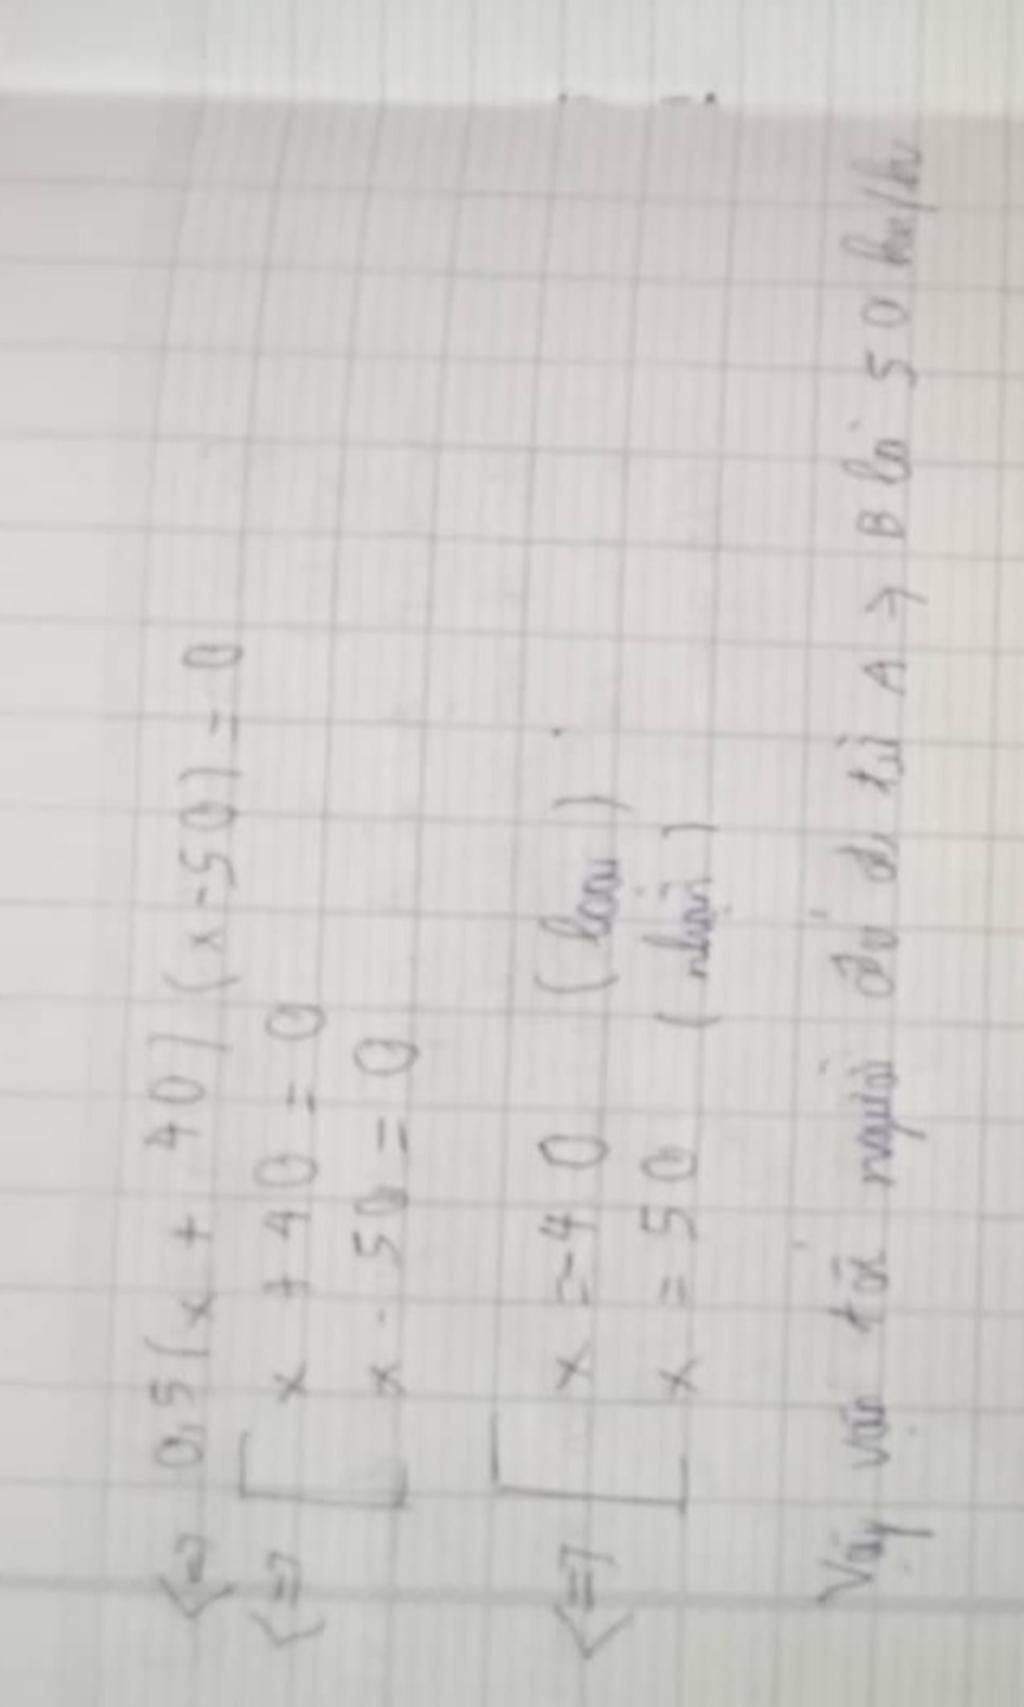 <=> 0,5(x + 40)(x-50) = 0
<=> [ x + 40 = 0
x - 50 = 0
<=> [ x = -40 (loại)
x = 50 (nhận)
Vậy vận tốc người đó đi từ A → B là 50 km/h